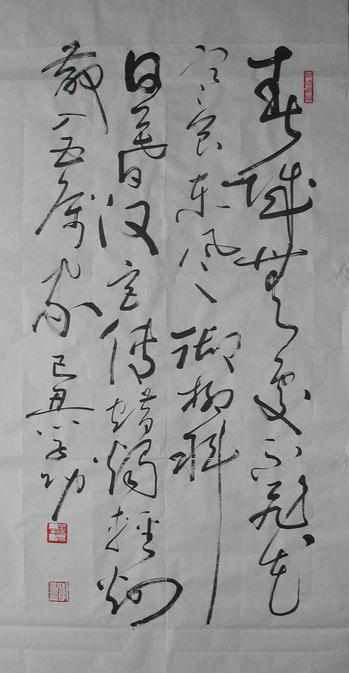 春城無处不飛花
寒食東風御柳斜
日暮汉宫傳蜡燭輕烟
散入五侯家 己丑 功